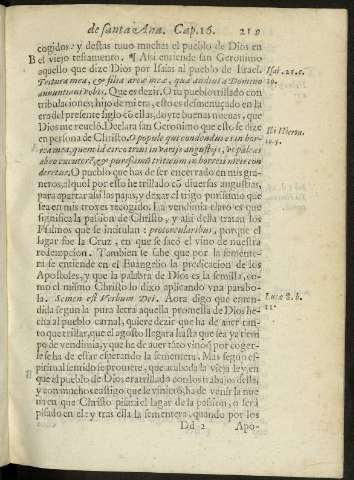 de santa Ana. Cap. 16. 210
cogidos: y destas tuuo muchas el pueblo de Dios en
B el viejo testamento. ¶ Assi entiende san Geronimo
aquello que dize Dios por Isaias al pueblo de Israel. Isai. 21.
Tritura mea, & filia areæ meæ, quæ audiui a Domino 10.
annuntiaui vobis. Que es dezir. O tu pueblo trillado con
tribulaciones, hijo de mi era, esto es desmenuçado en la
era del presente siglo cõ ellas, doyte buenas nueuas, que
Dios me reueló. Declara san Geronimo que esto se dize
en persona de Christo. O popule qui condendus es in hor- Ibi Hieron.
rea mea, quem id circo triui in varijs angustijs, vt paleas
abs te excuterẽ, & purissimũ triticum in horreis meis con
deretur. O pueblo que has de ser encerrado en mis gra-
neros, al qual por esso he trillado cõ diuersas angustias,
para apartar assi las pajas, y dexar el trigo purissimo que
sea en mis troxes recogido. La vendimia claro es que
significa la passion de Christo, y assi desta tratan los
Psalmos que se intitulan: pro torcularibus, porque el
lagar fue la Cruz, en que se sacò el vino de nuestra
redempcion. Tambien se sabe que por la semente-
ra se entiende en el Euangelio la predicacion de los
Apostoles, y que la palabra de Dios es la semilla, co-
mo el mismo Christo lo dixo aplicando vna parabo-
la. Semen est Verbum Dei. Aora digo que enten- Lucæ 8. b.
dida segun la pura letra aquella promessa de Dios he- 11.
cha al pueblo carnal, quiere dezir que ha de auer tan-
to que trillar, que el agosto llegara hasta que sea ya tiem
po de vendimia, y que ha de auer tãto vino q̃ por coger-
le se ha de estar esperando la sementera. Mas segun es-
piritual sentido se promete, que acabada la vieja ley, en
que el pueblo de Dios era trillado con los trabajos della,
y con muchos castigos que le vinierõ, ha de venir la nue
ua en que Christo pisará el lagar de la passion, o será
pisado en el: y tras ella la sementera, quando por los
Dd 2 Apo-